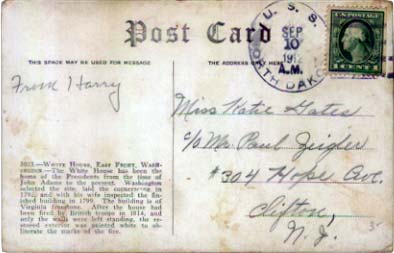 Post Card
THIS SPACE MAY BE USED FOR MESSAGE
THE ADDRESS
U. S. S.
NORTH DAKO
SEP
10
191
A.M.
U.S. POSTAGE
1 CENT 1
From Harry
Miss Katie Gates
c/o Mr. Paul Zeigler
#304 Hope Ave.
Clifton,
N. J.
WHITE HOUSE, EAST FRONT, WASH-
INGTON.—The White House has been the
home of the Presidents from the time of
John Adams to the present. Washington
selected the site, laid the cornerstone in
1792, and with his wife inspected the fin-
ished building in 1799. The building is of
Virginia freestone. After the house had
been fired by British troops in 1814, and
only the walls were left standing, the re-
stored exterior was painted white to ob-
literate the marks of the fire.